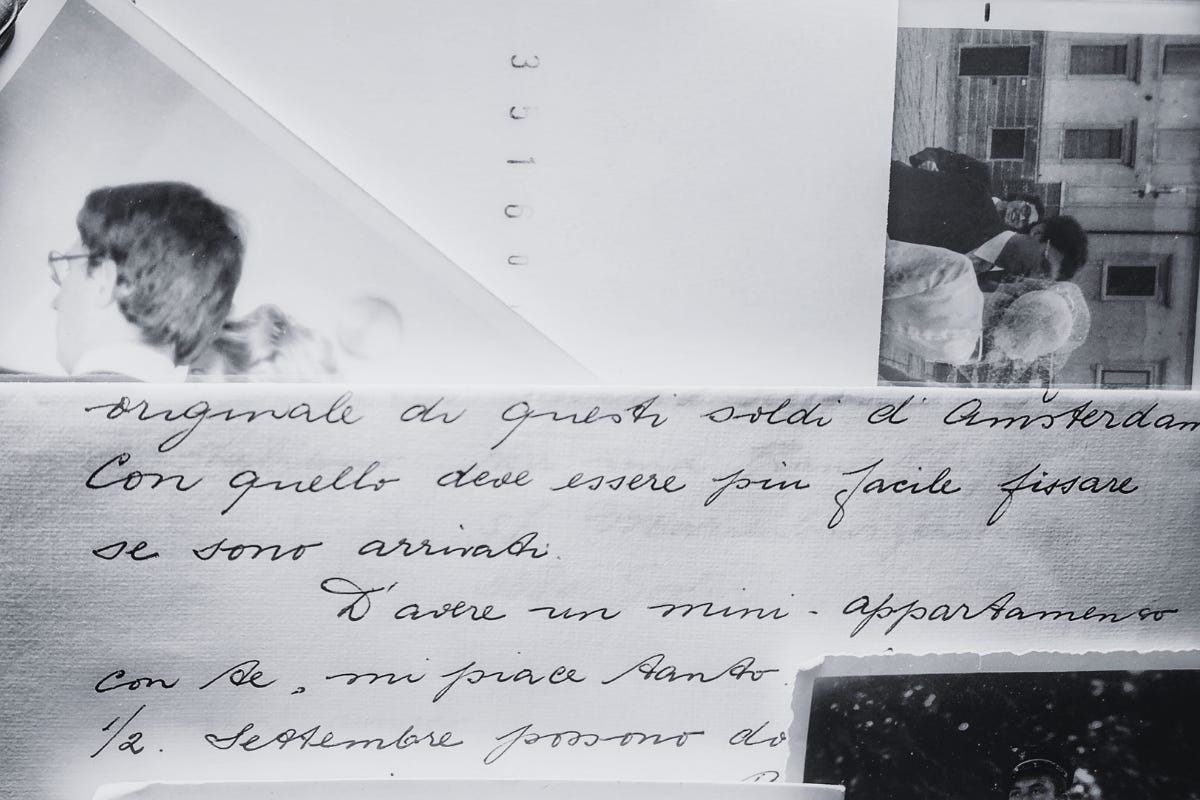 35160
originale di questi soldi d'Amsterdam
Con quello deve essere piu facile fissare
se sono arrivati.
D'avere un mini-appartamento
con te, mi piace tanto.
1/2. Settembre possono do